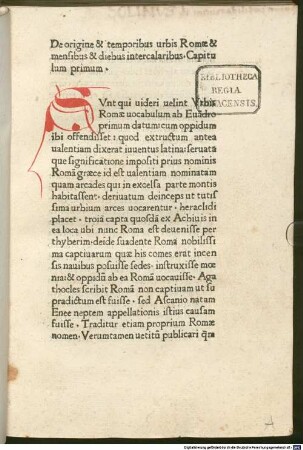 De origine & temporibus urbis Romæ &
mensibus & diebus intercalaribus. Capitu
lum primum.
BIBLIOTHECA
REGIA
MONACENSIS.
SVnt qui uideri uelint Vrbis
Romæ uocabulum ab Euãdro
primum datum: cum oppidum
ibi offendisset: quod extructum antea
ualentiam dixerat iuuentus latina: seruata
que significatione impositi prius nominis
Romã græce id est ualentiam nominatam
quam arcades qui in excelsa parte montis
habitassent. deriuatum deinceps ut tutis
sima urbium arces uocarentur. heraclidi
placet. troia capta quosdã ex Achiuis in
ea loca ubi nunc Roma est deuenisse per
thyberim. deide suadente Romã nobilissi
ma captiuarum quæ his comes erat incen
sis nauibus posuisse sedes. instruxisse mœ
nia: & oppidũ ab ea Romã uocauisse. Aga
thocles scribit Romã non captiuam ut su
prædictum est fuisse. sed Ascanio natam
Enee neptem appellationis istius causam
fuisse. Traditur etiam proprium Romæ
nomen. Verumtamen uetitũ publicari q̃a